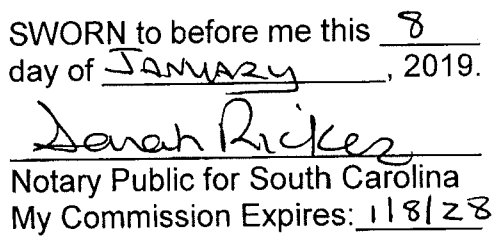 SWORN to before me this 8
day of JANUARY, 2019.
Sarah Ricker
Notary Public for South Carolina
My Commission Expires: 1/8/28